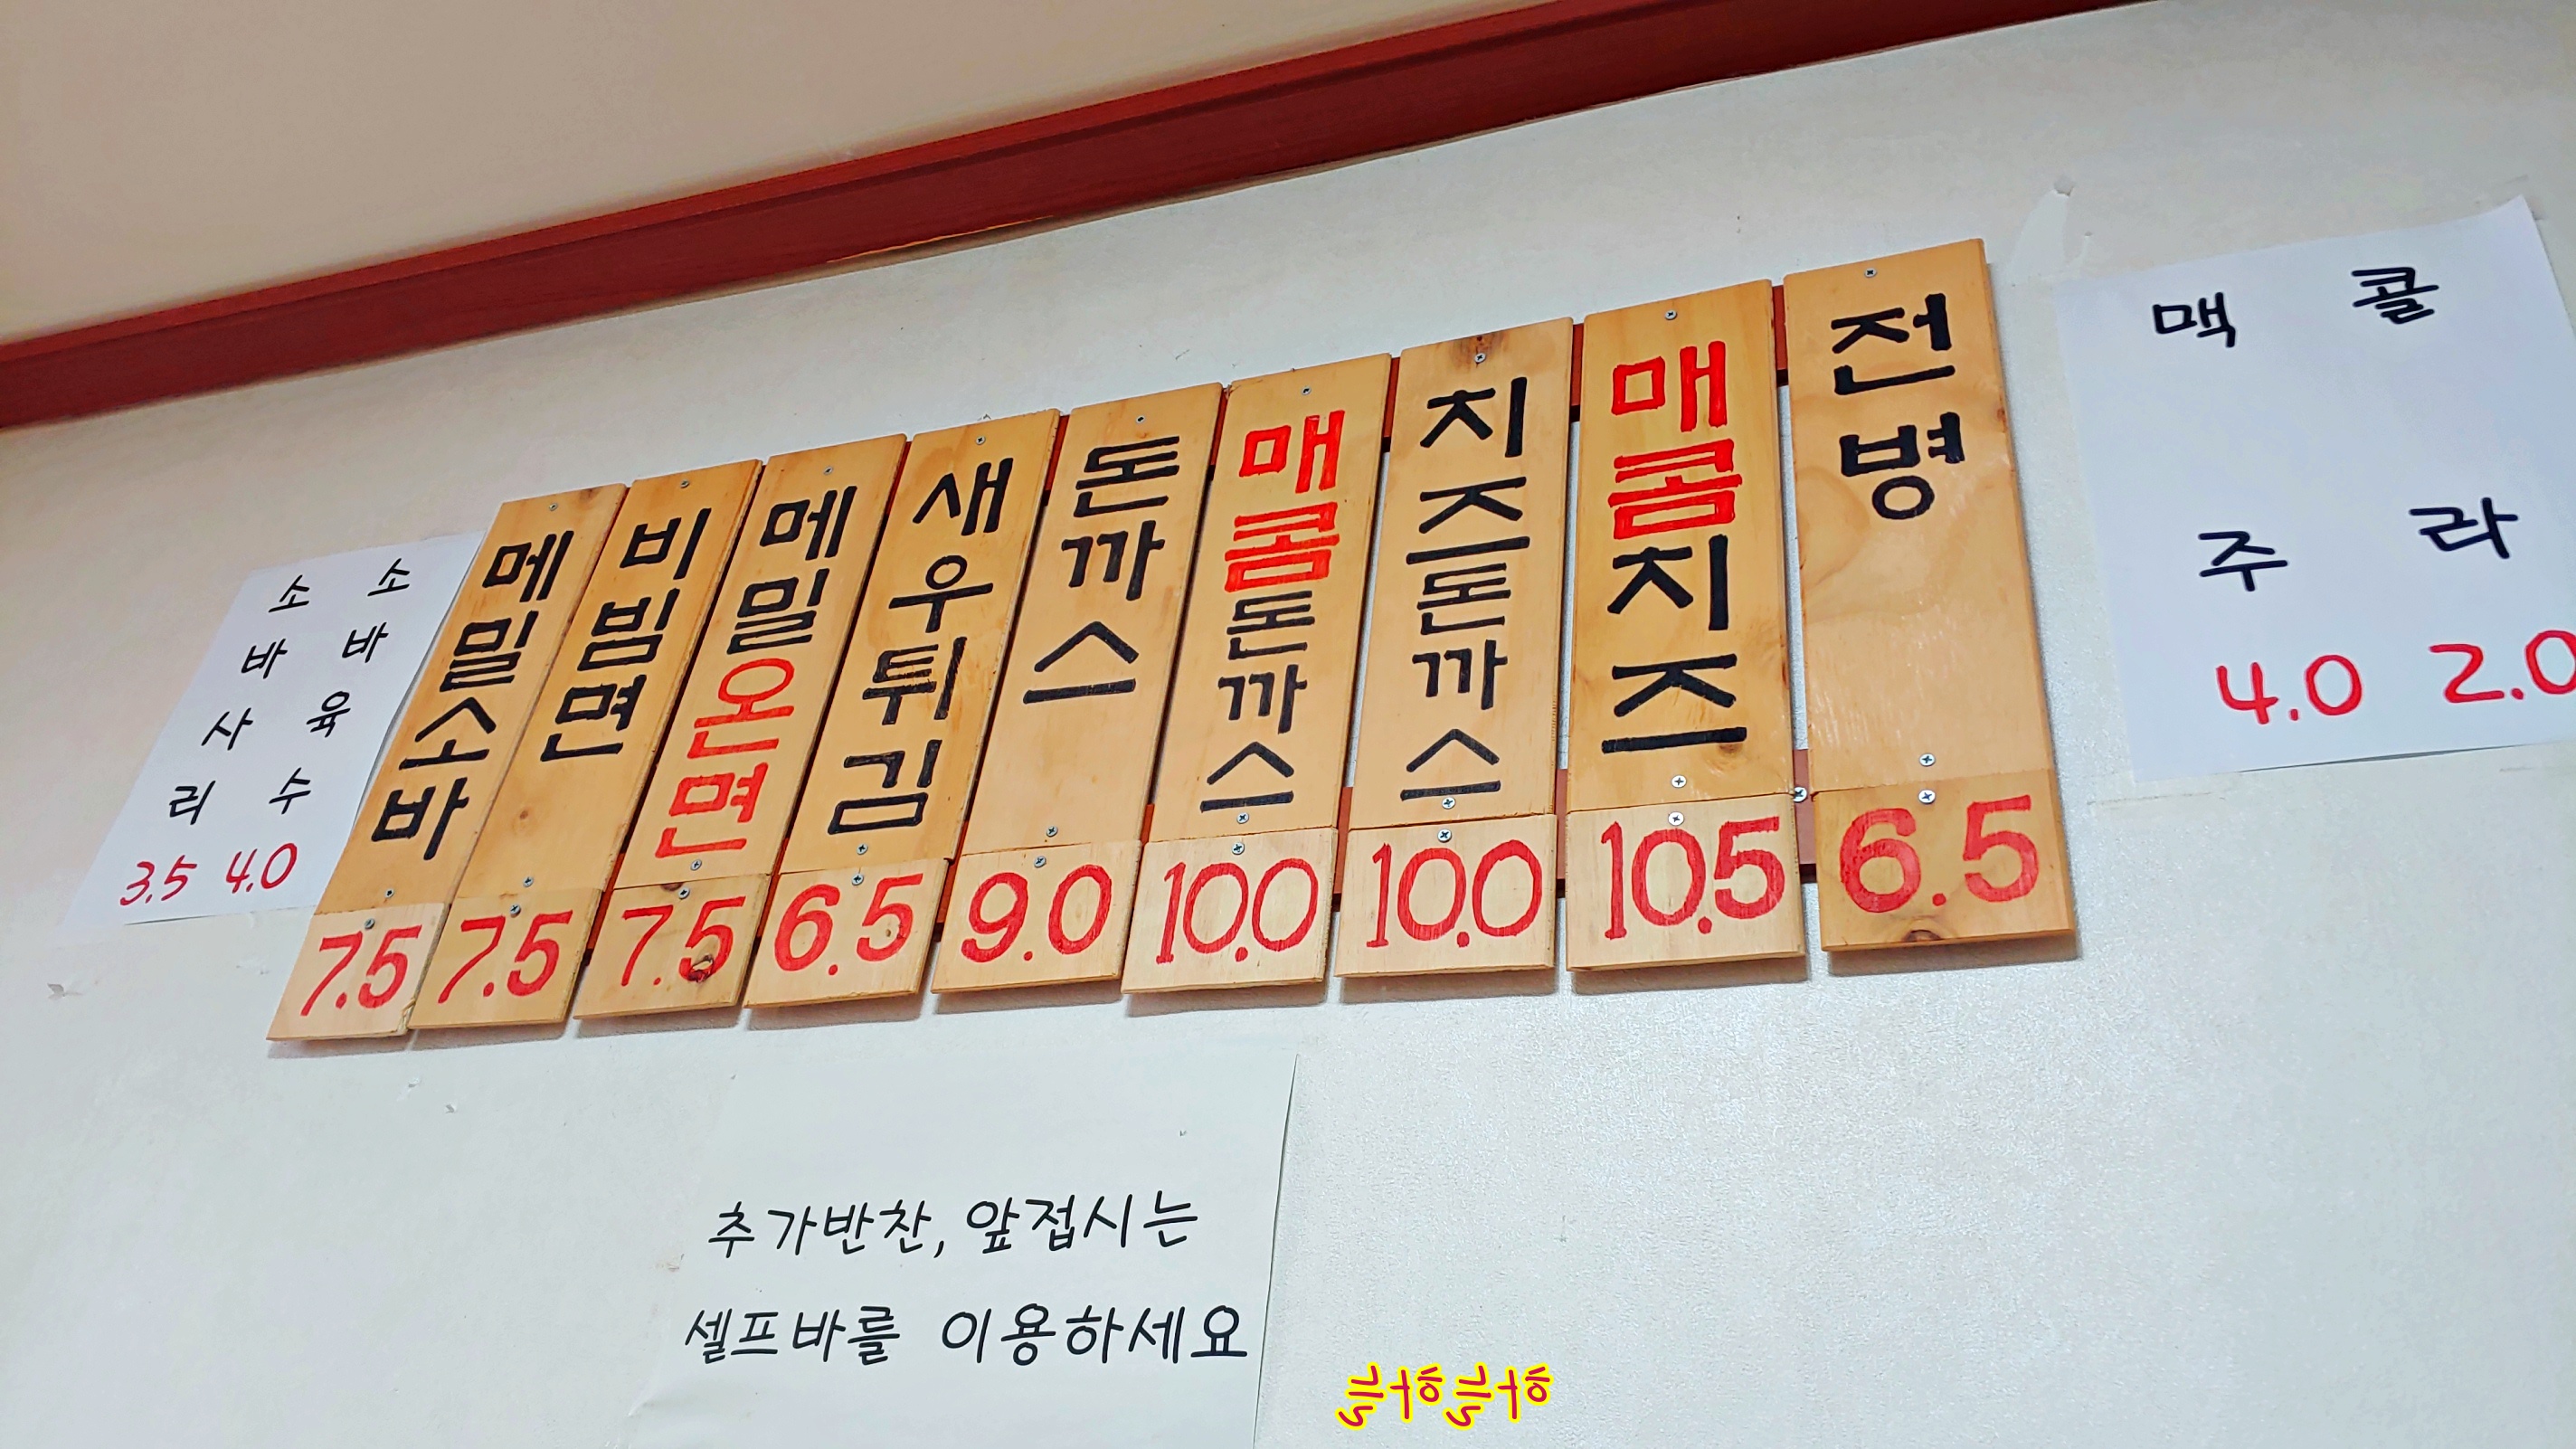 소바사리 3.5
소바육수 4.0
메밀소바 7.5
비빔면 7.5
메밀온면 7.5
새우튀김 6.5
돈까스 9.0
매콤돈까스 10.0
치즈돈까스 10.0
매콤치즈 10.5
전병 6.5
맥주 4.0
콜라 2.0
추가반찬, 앞접시는
셀프바를 이용하세요
하늘하늘